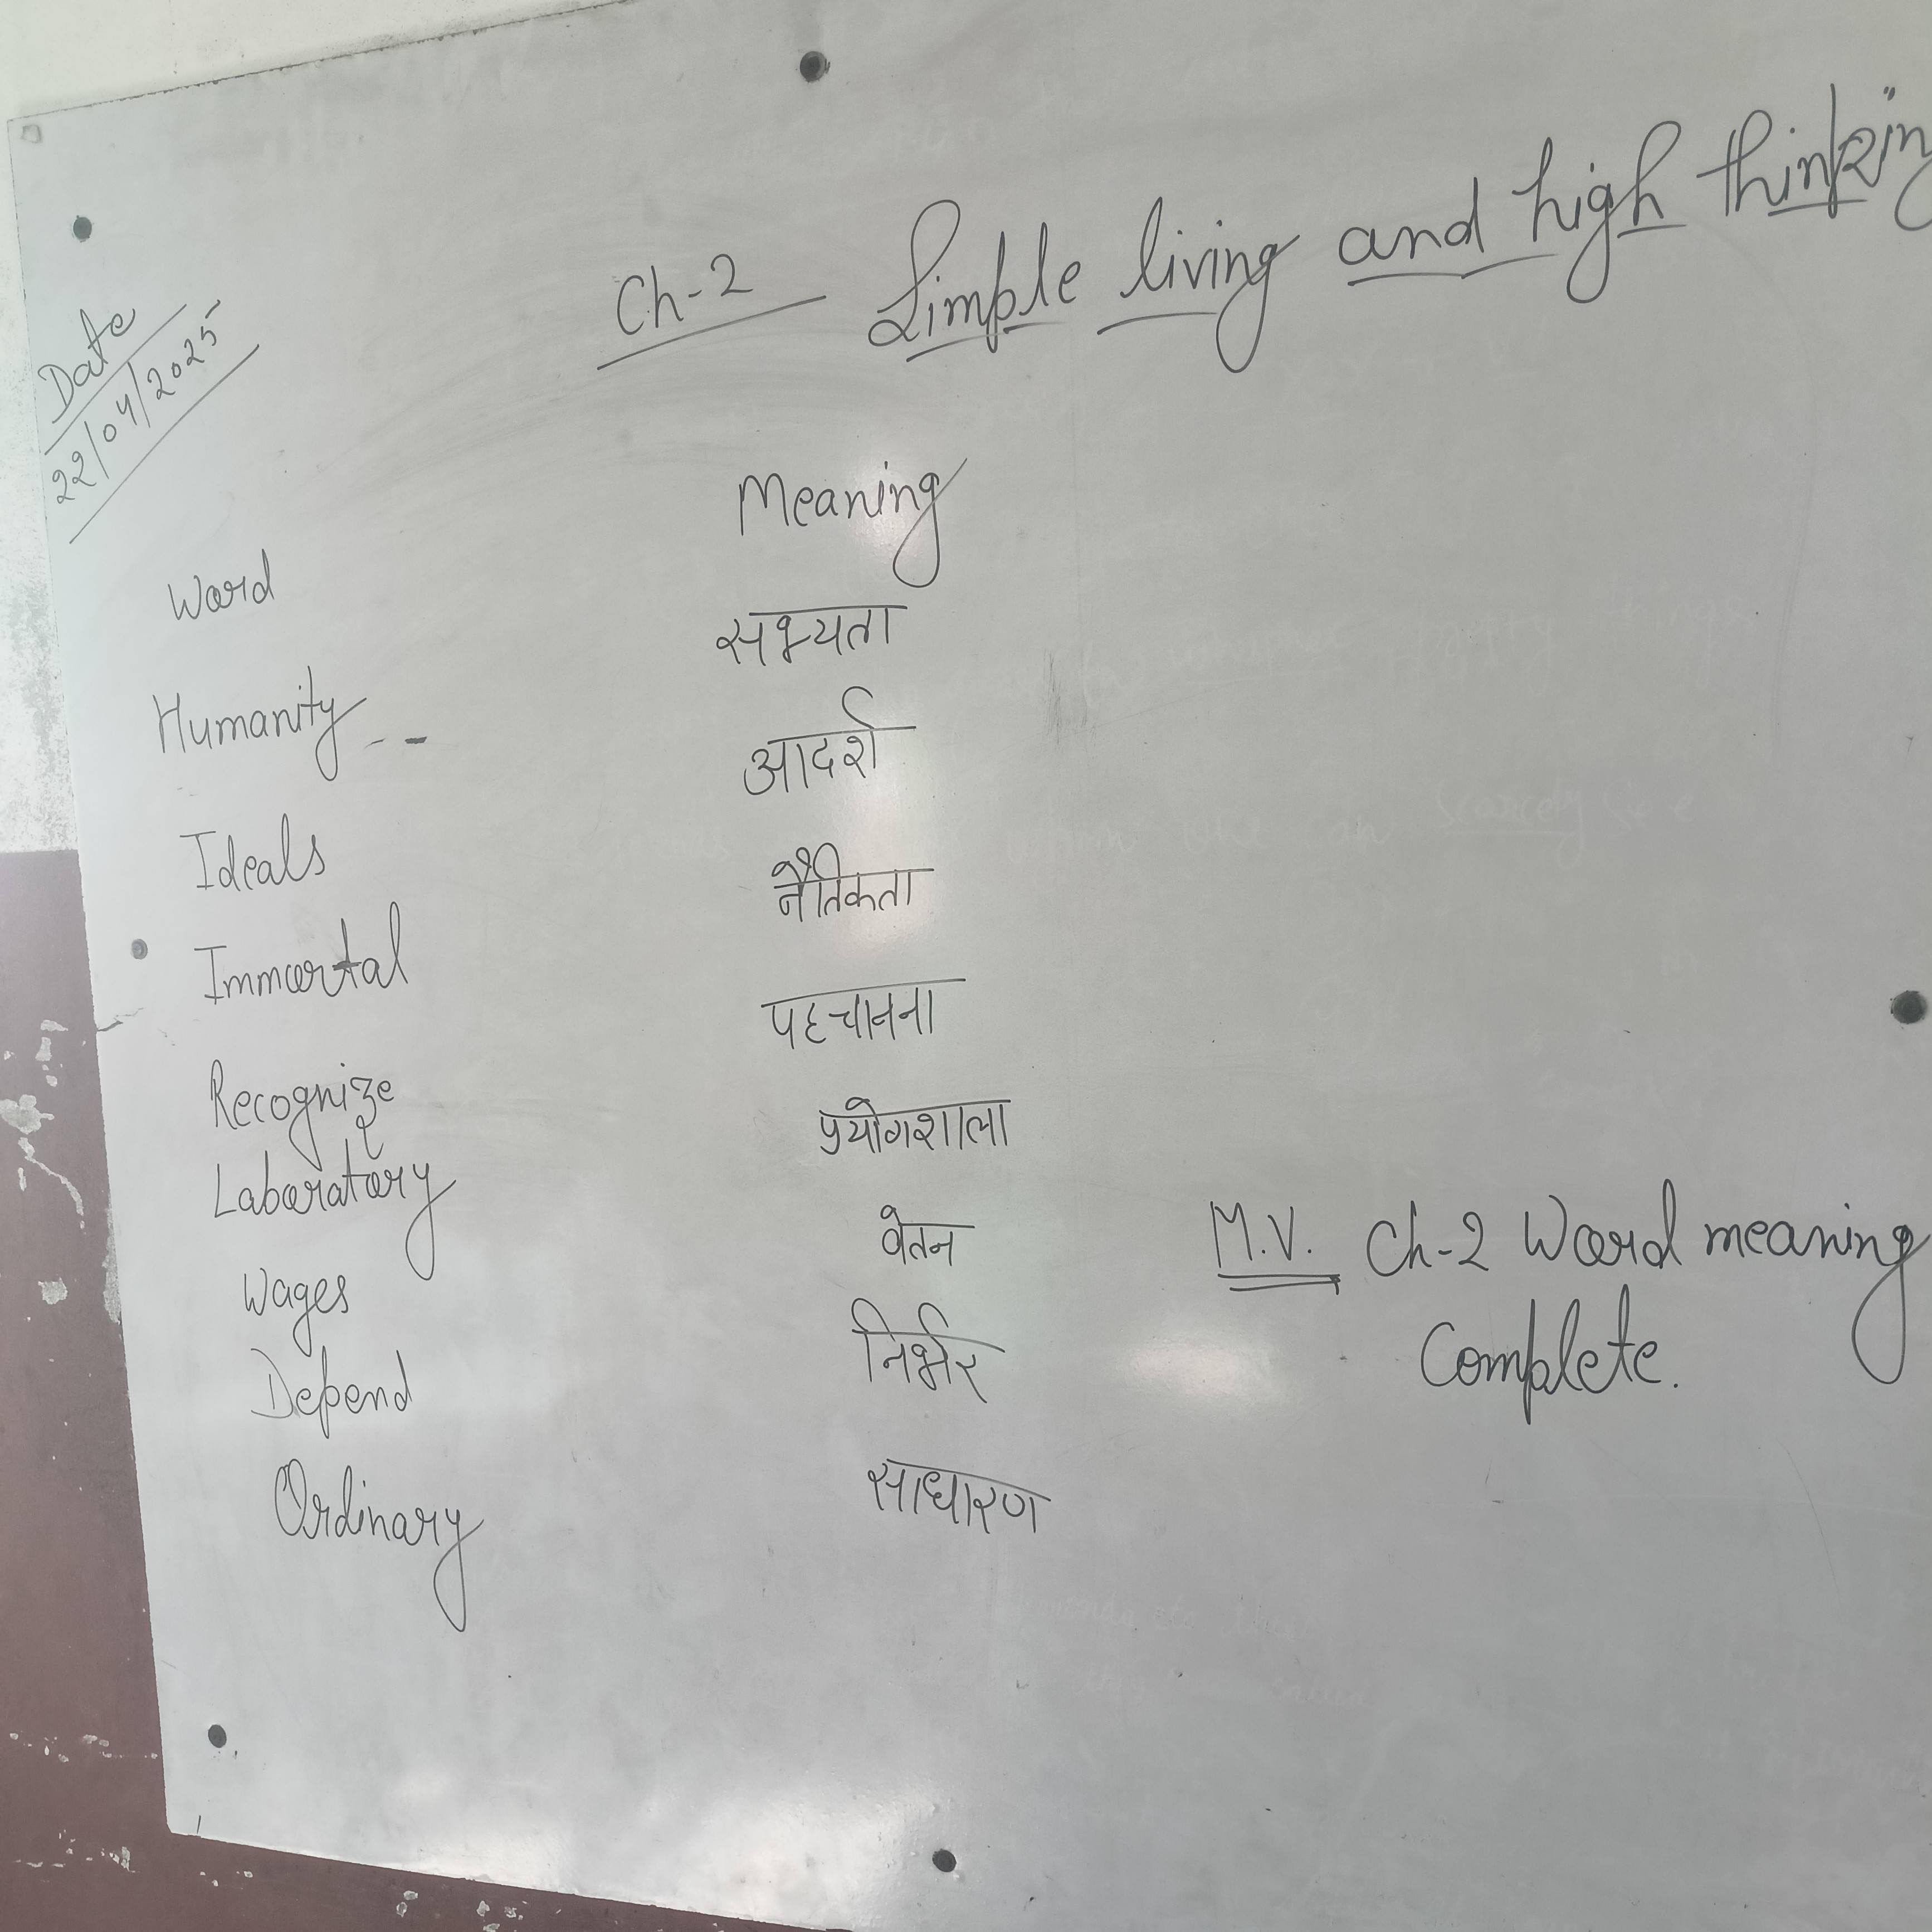 Date
22/04/2025
Ch-2 Simple living and high thinking"
Word Meaning
Humanity -- सभ्यता
Ideals आदर्श
Immortal नैतिकता
Recognize पहचानना
Laboratory प्रयोगशाला
Wages वेतन
Depend निर्भर
Ordinary साधारण
M.V. Ch-2 Word meaning
Complete.